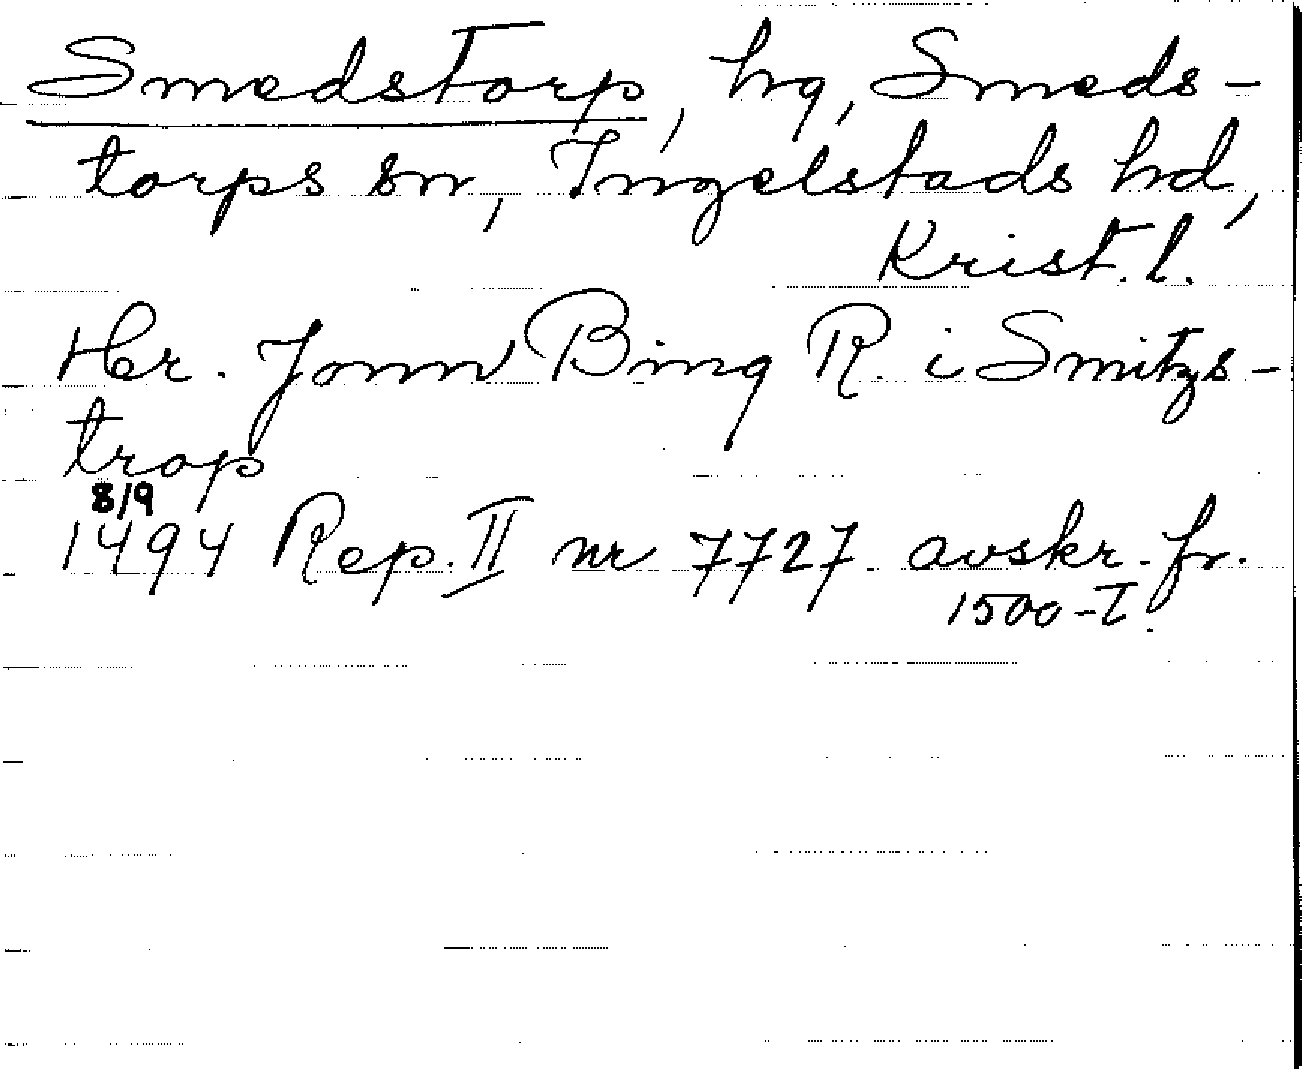 Smedstorp, hg, Smeds-
torps sn, Ingelstads hd,
Krist. l.
Her. Jonn Bing R. i Smitzs-
trop
8/9
1494 Rep. II nr 7727. avskr. fr.
1500-T.